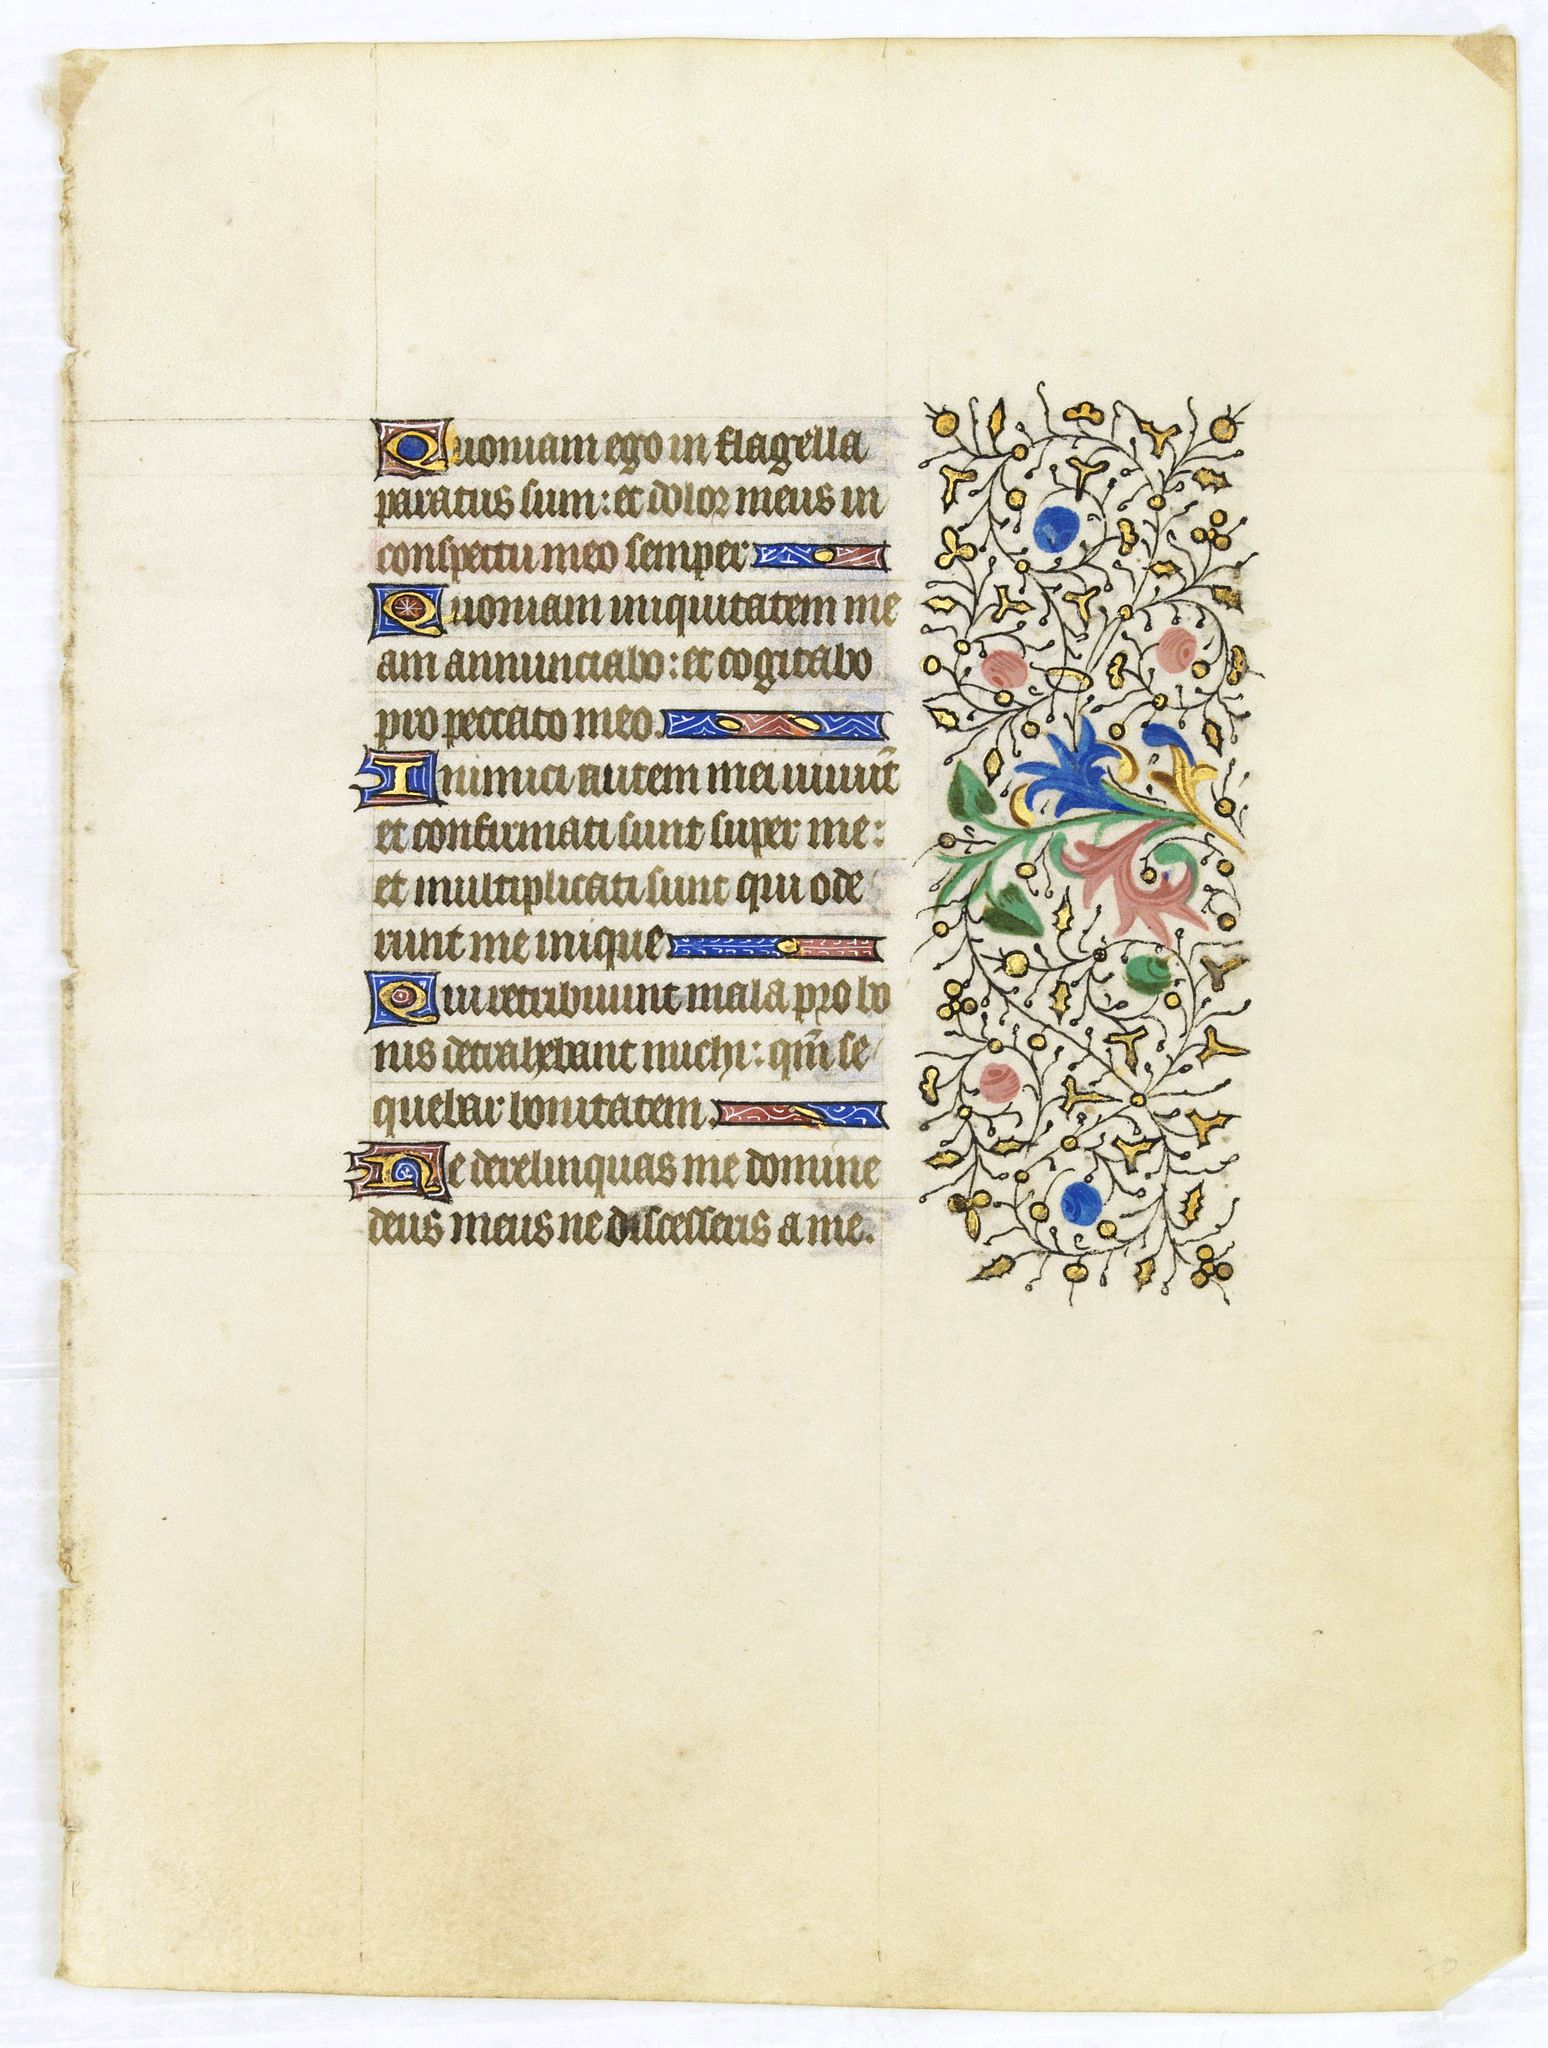 Quoniam ego in flagella
paratus sum: et dolor meus in
conspectu meo semper
Quoniam iniquitatem me
am annunciabo: et cogitabo
pro peccato meo.
Inimici autem mei uiuūt
et confirmati sunt super me:
et multiplicati sunt qui ode
runt me inique
Qui retribuunt mala pro bo
nis detrahebant michi: qm̄ se
quebar bonitatem.
Ne derelinquas me domine
deus meus ne discesseris a me.